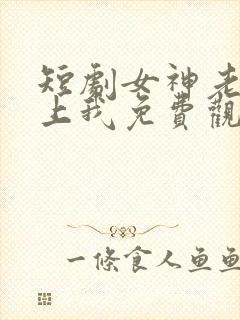 短劇女神老
上我免費觀
一條食人魚魚